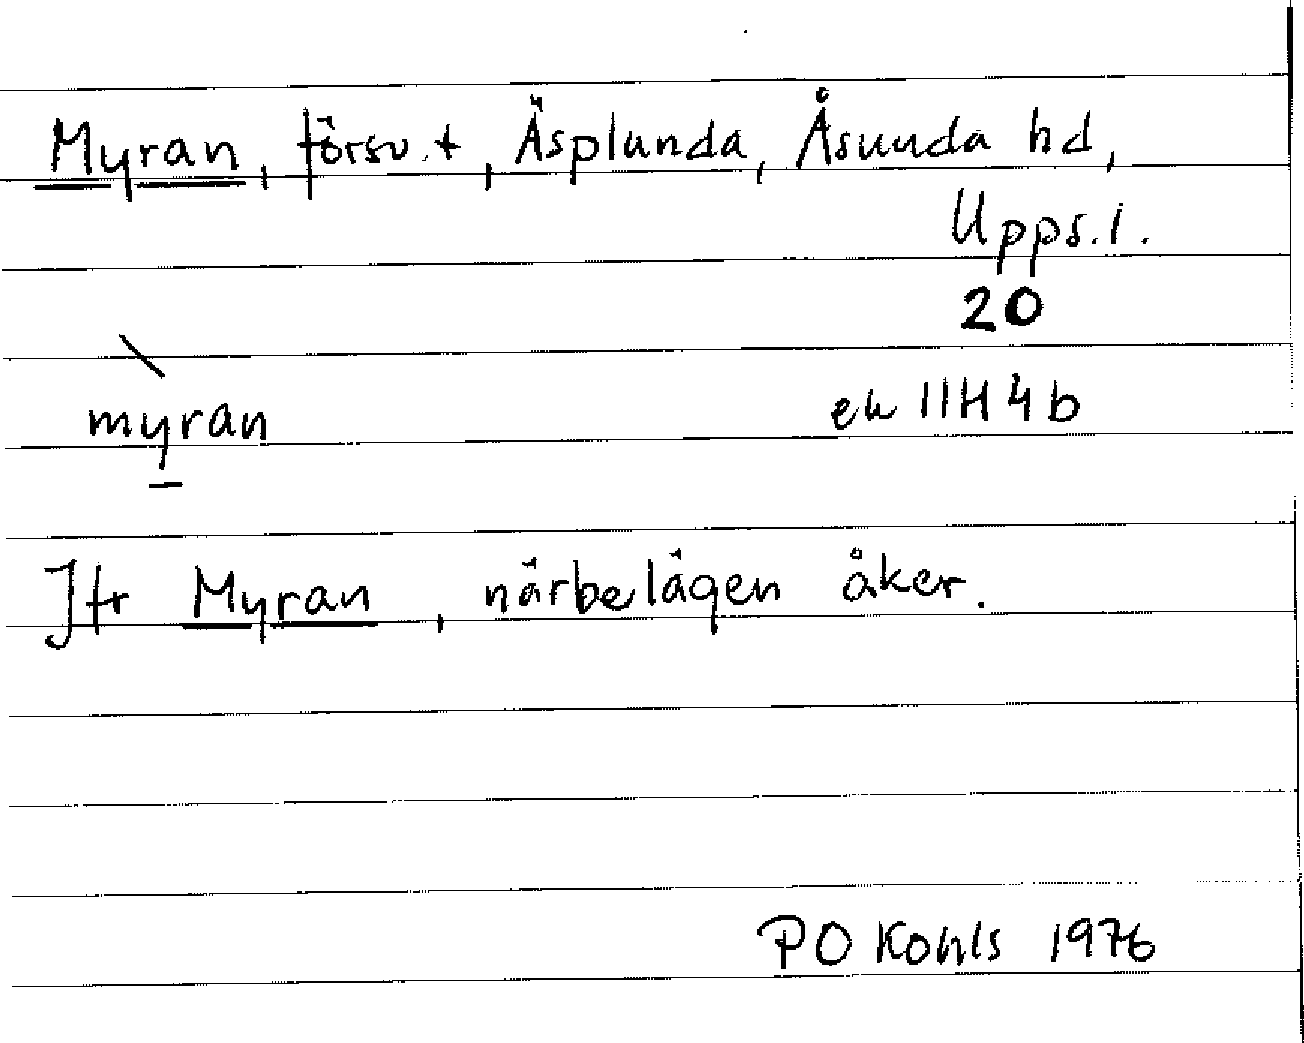 Myran, försv. t, Äsplunda, Åsunda hd,
Upps. l.
20
myran
ek 11H 4b
Jfr Myran, närbelägen åker.
PO Kohls 1976